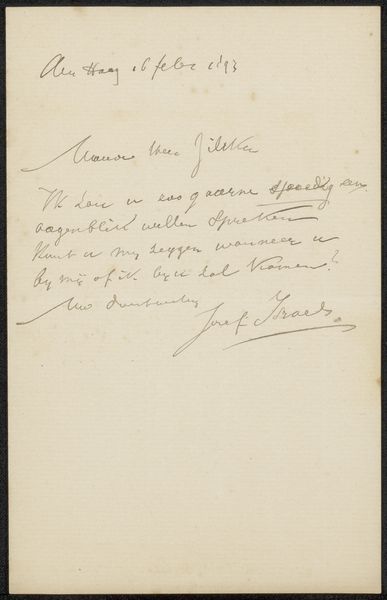 den Haag 16 febr 1893
Waarde Heer Zilcken
Ik zou u zoo gaarne spoedig een
oogenblik willen spreken
Kunt u my zeggen wanneer u
by mij of ik by u zal komen?
Uw
Jozef Israels.